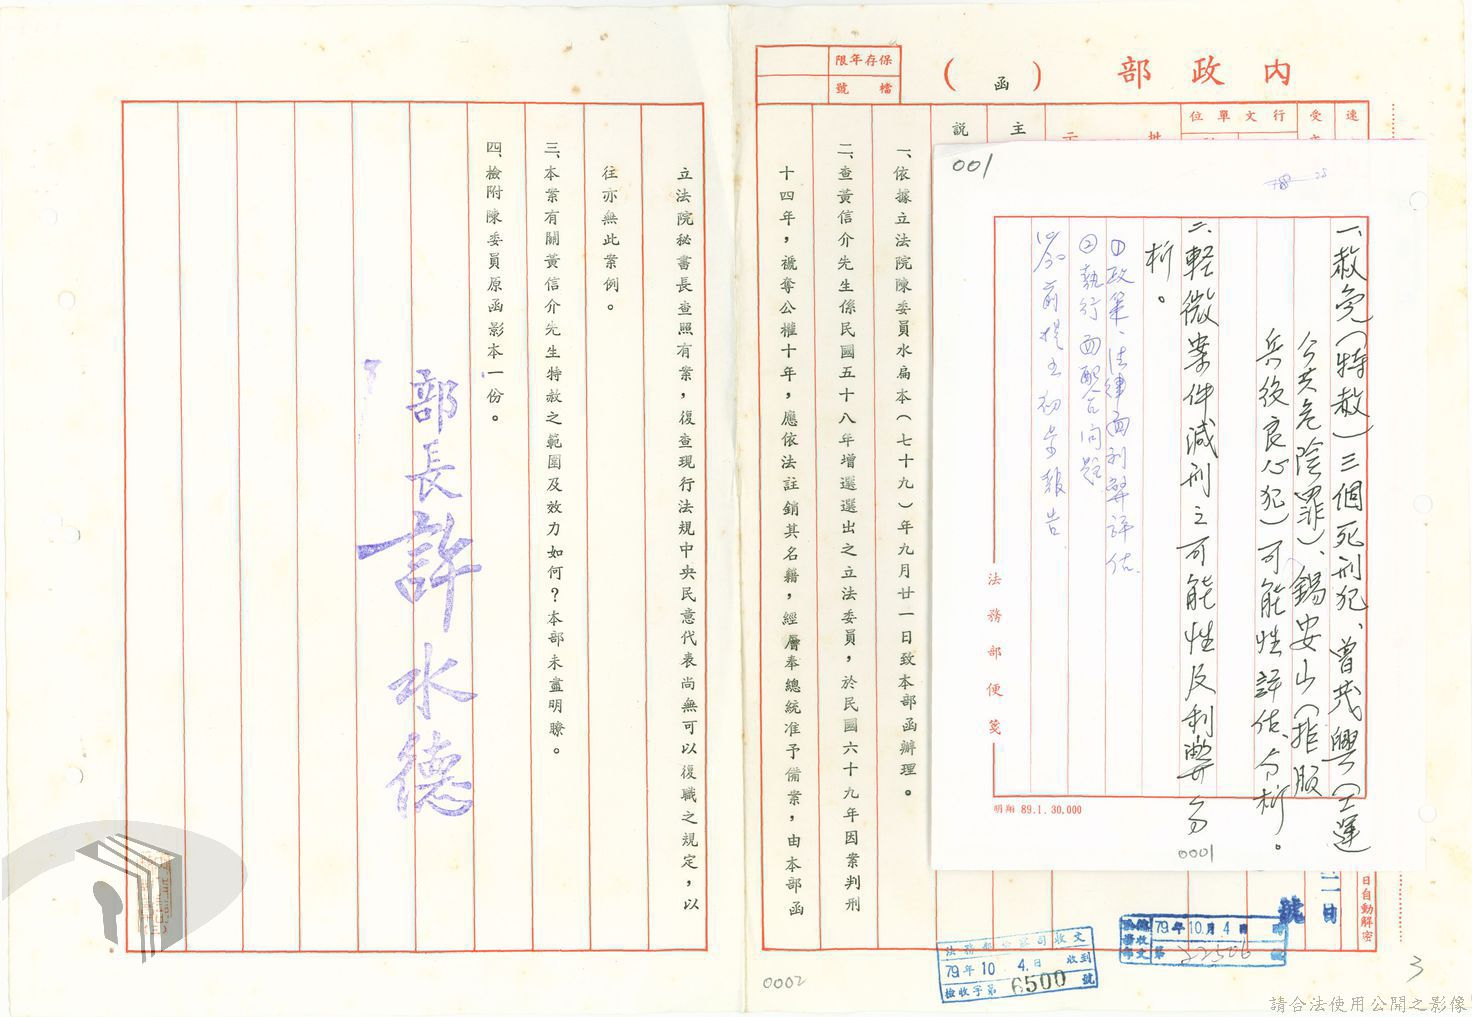 內政部
（函）
保存年限
檔號
速
受
行文單位
批
示
主
說
一、依據立法院陳委員水扁本（七十九）年九月廿一日致本部函辦理。
二、查黃信介先生係民國五十八年增選選出之立法委員，於民國六十九年因案判刑
十四年，褫奪公權十年，應依法註銷其名籍，經層奉總統准予備案，由本部函
立法院秘書長查照有案，復查現行法規中央民意代表尚無可以復職之規定，以
往亦無此案例。
三、本案有關黃信介先生特赦之範圍及效力如何？本部未盡明瞭。
四、檢附陳委員原函影本一份。
部長許水德
001
一、赦免（特赦）三個死刑犯、曾茂興（工運
公共危險罪）、錫安山（拒服
兵役良心犯）可能性評估、分析。
二、輕微案件減刑之可能性及利弊分
析。
①政策、法律面利弊評估、
②執行面配合問題
10/30前提出初步報告、
法務部便箋
明翔 89.1.30.000
0001
日自動解密
號
79年10月4日
收文
第22506號
法務部檢察司收文
79年10 4.日 收到
檢收字第6500號
0002
3
請合法使用公開之影像